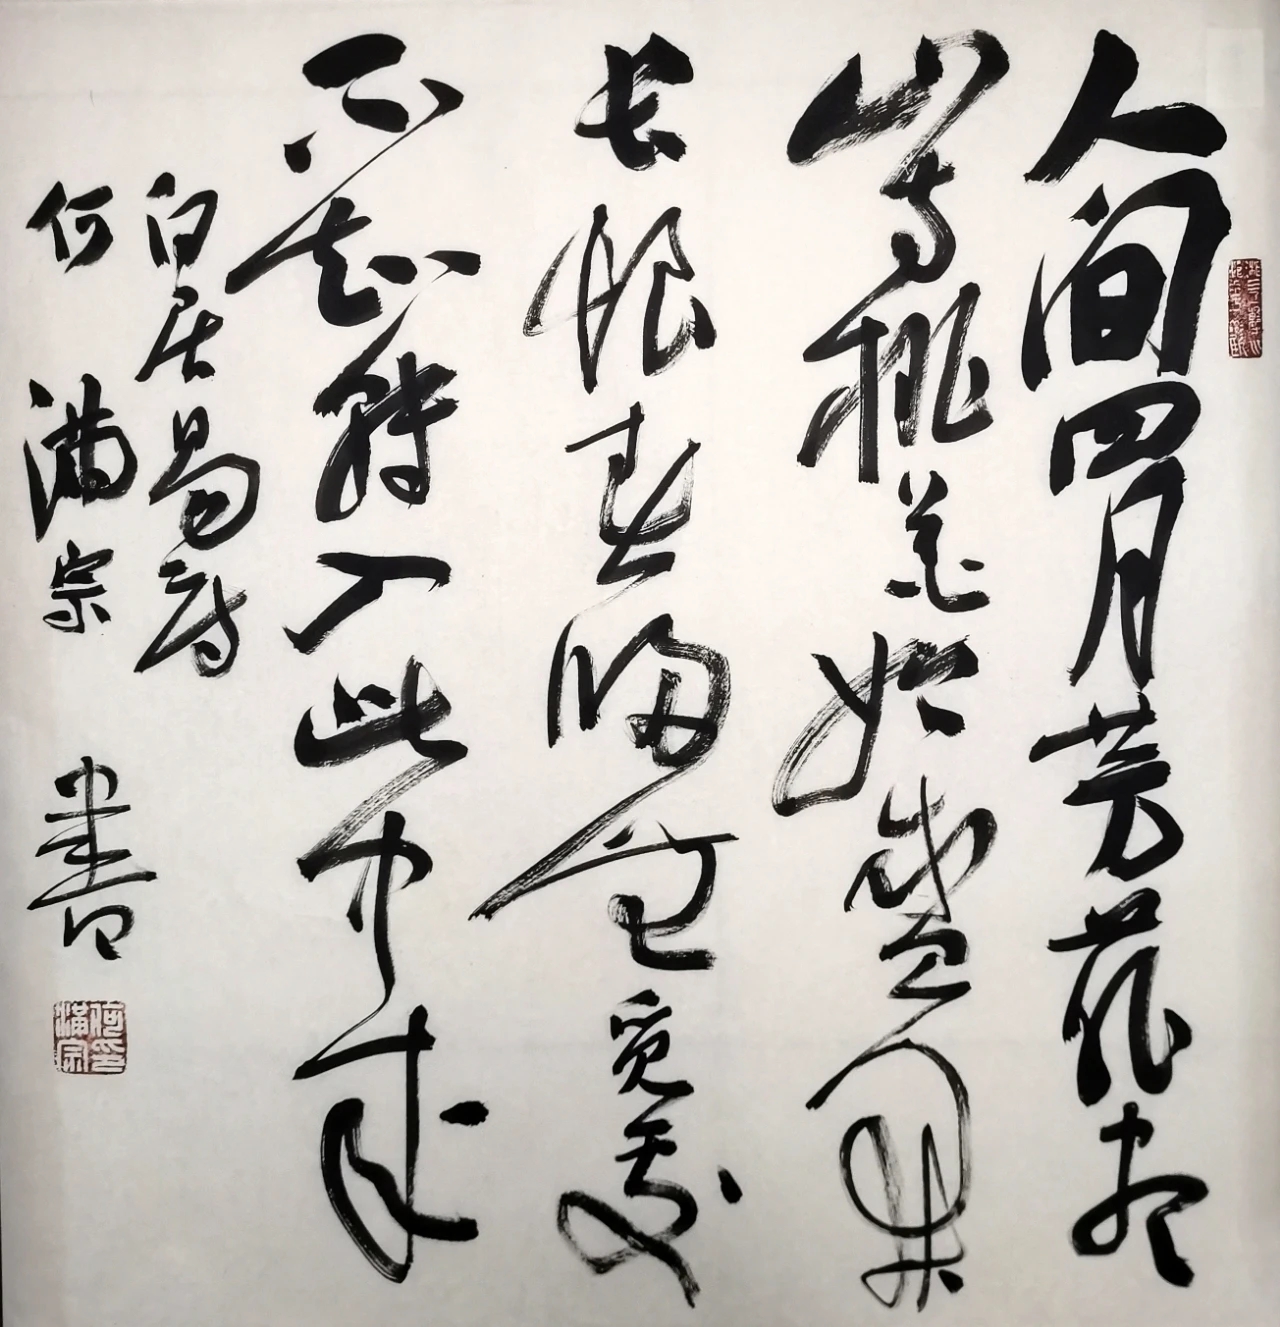 人间四月芳菲尽
山寺桃花始盛开
长恨春归无觅处
不知转入此中来
白居易诗
何满宗书
何满宗印